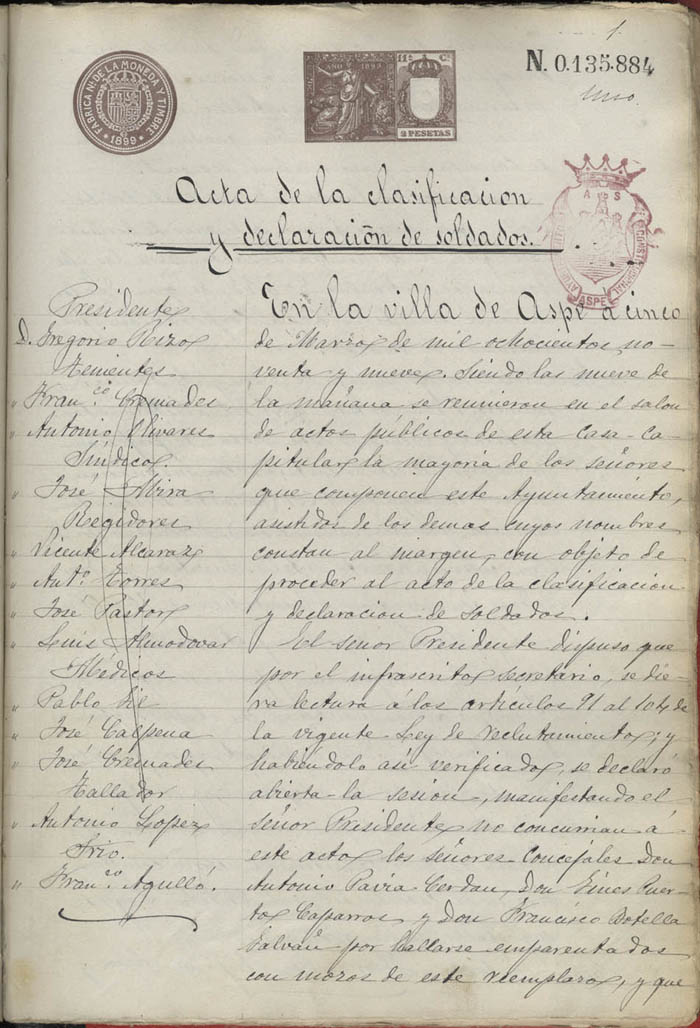 1
FABRICA Nl. DE LA MONEDA Y TIMBRE
1899
AÑO 1899
11ª Cª
2 PESETAS
N. 0.135.884
Uno.
A S
AYUNTAMIENTO CONSTITUCIONAL
ASPE
Acta de la clasificacion
y declaración de soldados.
Presidente
D. Gregorio Rizo
Tenientes
" Fran.co Cremades
" Antonio Olivares
Síndico.
" José Mira
Regidores
" Vicente Alcaraz
" Ant.o Torres
" José Pastor
" Luis Almodovar
Médicos
" Pablo Gil
" José Calpena
" José Cremades
Tallador
" Antonio Lopez
Srio.
" Fran.co Agulló.
En la villa de Aspe a cinco
de Marzo de mil ochocientos no-
venta y nueve. Siendo las nueve de
la mañana se reunieron en el salon
de actos públicos de esta Casa-Ca-
pitular la mayoria de los señores
que componen este Ayuntamiento,
asistidos de los demas cuyos nombres
constan al margen, con objeto de
proceder al acto de la clasificacion
y declaracion de soldados.
El señor Presidente dispuso que
por el infrascrito secretario, se die-
ra lectura á los artículos 91 al 104 de
la vigente Ley de reclutamiento; y
habiéndolo asi verificado, se declaró
abierta la sesion, manifestando el
señor Presidente no concurrian á
este acto los señores Concejales Don
Antonio Pavia Cerdan, Don Gines Puer-
to Caparros y Don Francisco Botella
Galvañ por hallarse emparentados
con mozos de este reemplazo, y que